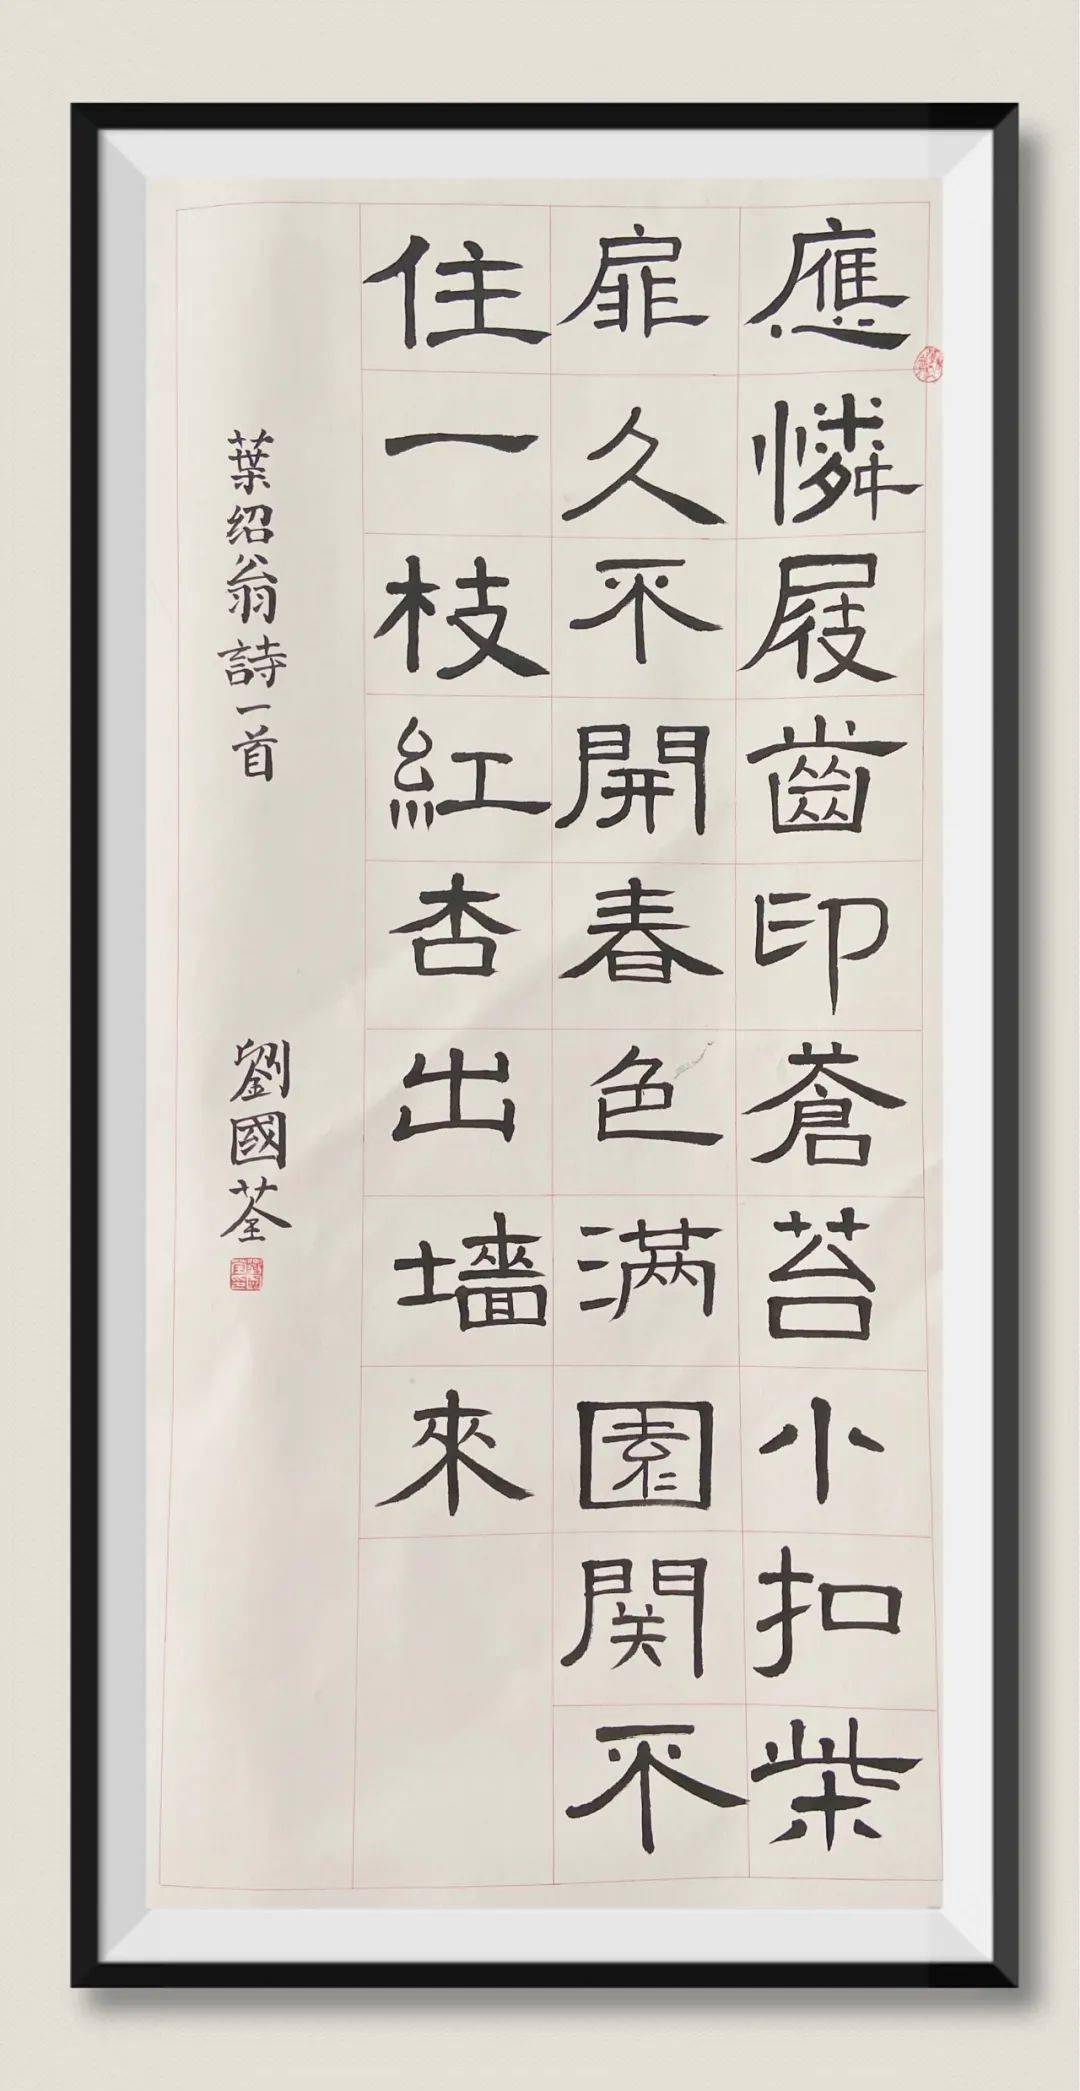 應憐屐齒印蒼苔小扣柴
扉久不開春色滿園関不
住一枝紅杏出墻來
葉绍翁詩一首
劉國荃